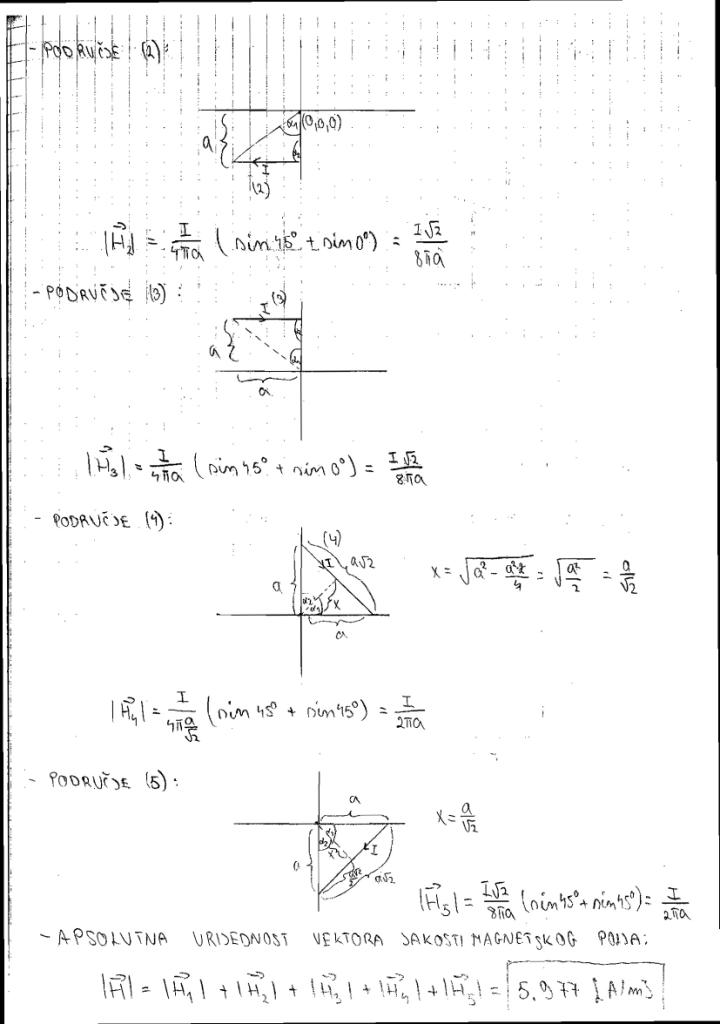 - PODRUČJE (2):
a α₁ (0,0,0)
α₂
I
(2)
|H⃗₂| = I/4πa (sin 45° + sin 0°) = I√2/8πa
- PODRUČJE (3):
I (3)
a α₂
α₁
a
|H⃗₃| = I/4πa (sin 45° + sin 0°) = I√2/8πa
- PODRUČJE (4):
(4)
I a√2
a α₂ α₁ x
a
x = √(a² - a²2/4) = √(a²/2) = a/√2
|H⃗₄| = I/(4π a/√2) (sin 45° + sin 45°) = I/2πa
- PODRUČJE (5):
a
x = a/√2
α₁
α₂ x I
a a√2/2 a√2
|H⃗₅| = I√2/8πa (sin 45° + sin 45°) = I/2πa
- APSOLUTNA VRIJEDNOST VEKTORA JAKOSTI MAGNETSKOG POLJA:
|H⃗| = |H⃗₁| + |H⃗₂| + |H⃗₃| + |H⃗₄| + |H⃗₅| = 5.977 [A/m]